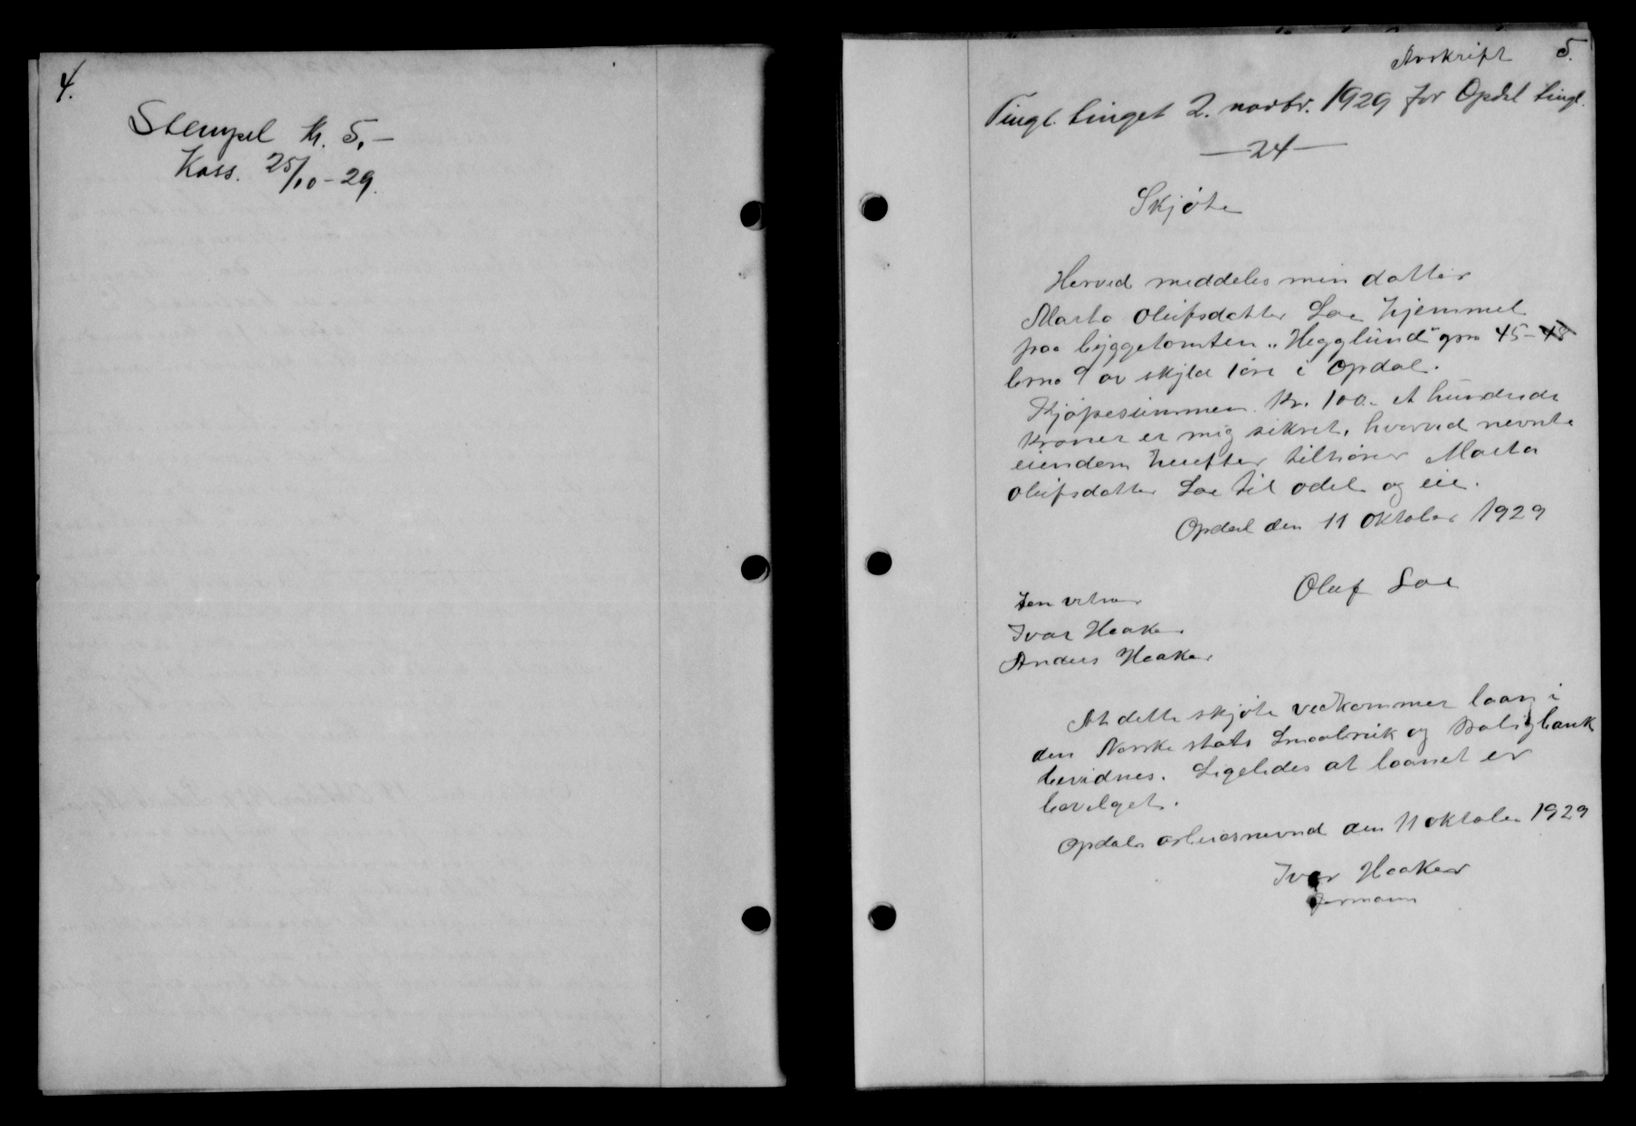 4.
Stempel kr. 5,-
Kass. 25/10-29.
Avskrift 5.
Tingl. tinget 2. novbr. 1929 for Opdal tingl.
—24—
Skjøte
Herved meddeles min datter
Marta Olufsdatter Loe hjemmel
paa byggetomten „Hegglund" gno 45-48
brno 9 av skyld 1 øre i Opdal.
Kjøpesummen kr. 100.- et hundrede
kroner er mig sikret, hvorved nevnte
eiendom herefter tilhører Marta
Olufsdatter Loe til odel og eie.
Opdal den 11 oktober 1929
Oluf Loe
Som vitner
Ivar Haaker
Anders Haaker
At dette skjøte vedkommer laan i
den Norske stats Smaabruk og Boligbank
bevidnes. Ligeledes at laanet er
bevilget.
Opdals arbeidsnevnd den 11 oktober 1929
Ivar Haaker
formann